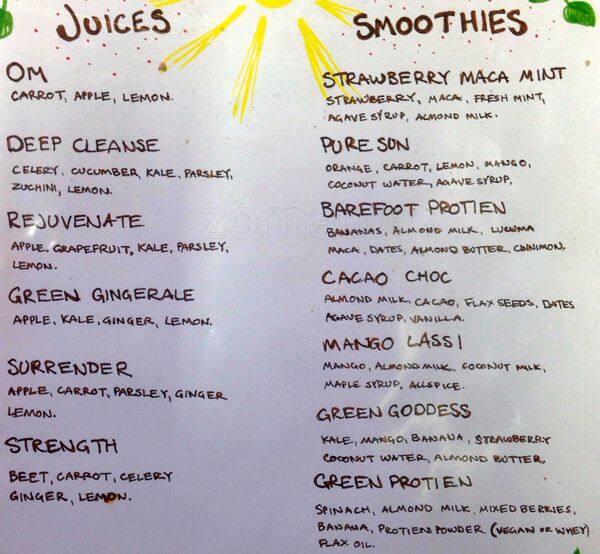 JUICES
OM
CARROT, APPLE, LEMON.
DEEP CLEANSE
CELERY, CUCUMBER, KALE, PARSLEY,
ZUCHINI, LEMON.
REJUVENATE
APPLE, GRAPEFRUIT, KALE, PARSLEY,
LEMON.
GREEN GINGERALE
APPLE, KALE, GINGER, LEMON.
SURRENDER
APPLE, CARROT, PARSLEY, GINGER
LEMON.
STRENGTH
BEET, CARROT, CELERY
GINGER, LEMON.
SMOOTHIES
STRAWBERRY MACA MINT
STRAWBERRY, MACA, FRESH MINT,
AGAVE SYRUP, ALMOND MILK.
PURE SUN
ORANGE, CARROT, LEMON, MANGO,
COCONUT WATER, AGAVE SYRUP,
BAREFOOT PROTIEN
BANANAS, ALMOND MILK, LUCUMA
MACA, DATES, ALMOND BUTTER, CINNIMON.
CACAO CHOC
ALMOND MILK, CACAO, FLAX SEEDS, DATES
AGAVE SYRUP, VANILLA.
MANGO LASSI
MANGO, ALMOND MILK, COCONUT MILK,
MAPLE SYRUP, ALLSPICE.
GREEN GODDESS
KALE, MANGO, BANANA, STRAWBERRY
COCONUT WATER, ALMOND BUTTER,
GREEN PROTIEN
SPINACH, ALMOND MILK, MIXED BERRIES,
BANANA, PROTIEN POWDER (VEGAN OR WHEY)
FLAX OIL.